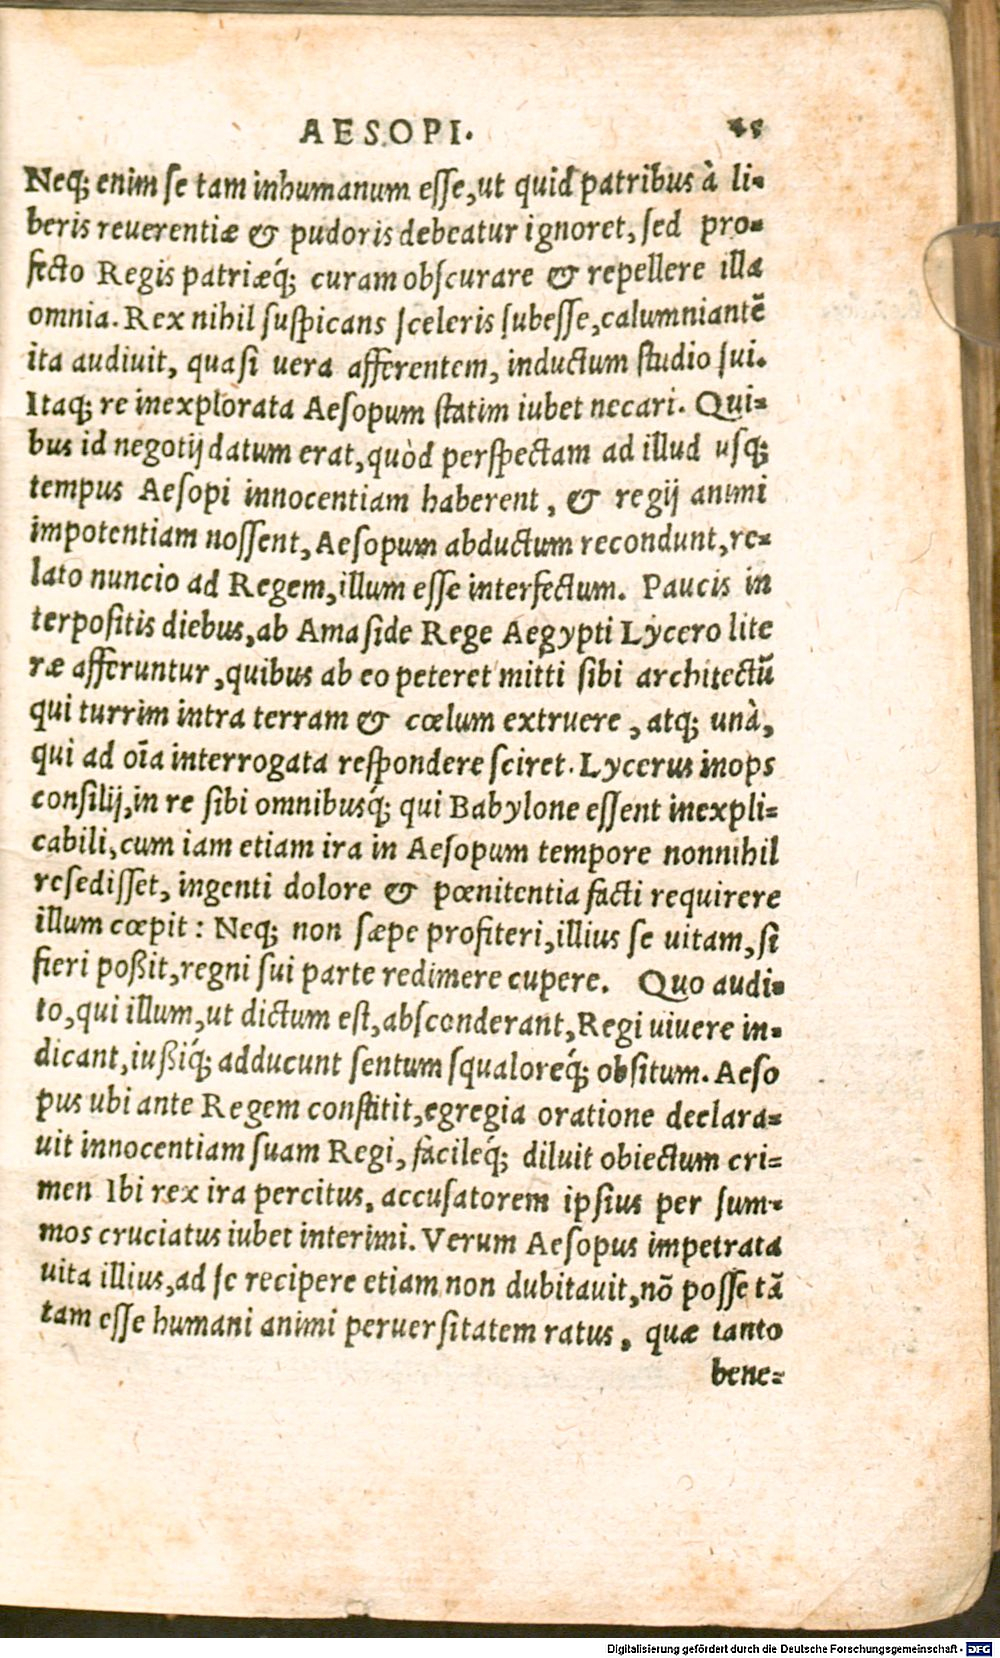 AESOPI. 45
Neq; enim se tam inhumanum esse, ut quid patribus à li-
beris reuerentiæ & pudoris debeatur ignoret, sed pro-
fecto Regis patriæq́; curam obscurare & repellere illa
omnia. Rex nihil suspicans sceleris subesse, calumniantẽ
ita audiuit, quasi uera afferentem, inductum studio sui.
Itaq; re inexplorata Aesopum statim iubet necari. Qui-
bus id negotij datum erat, quòd perspectam ad illud usq;
tempus Aesopi innocentiam haberent, & regij animi
impotentiam nossent, Aesopum abductum recondunt, re-
lato nuncio ad Regem, illum esse interfectum. Paucis in
terpositis diebus, ab Amaside Rege Aegypti Lycero lite
ræ afferuntur, quibus ab eo peteret mitti sibi architectũ
qui turrim intra terram & cœlum extruere, atq; unà,
qui ad oĩa interrogata respondere sciret. Lycerus inops
consilij, in re sibi omnibusq́; qui Babylone essent inexpli-
cabili, cum iam etiam ira in Aesopum tempore nonnihil
resedisset, ingenti dolore & pœnitentia facti requirere
illum cœpit: Neq; non sæpe profiteri, illius se uitam, si
fieri poßit, regni sui parte redimere cupere. Quo audi-
to, qui illum, ut dictum est, absconderant, Regi uiuere in-
dicant, iußiq́; adducunt sentum squaloreq́; obsitum. Aeso
pus ubi ante Regem constitit, egregia oratione declara-
uit innocentiam suam Regi, facileq́; diluit obiectum cri-
men Ibi rex ira percitus, accusatorem ipsius per sum-
mos cruciatus iubet interimi. Verum Aesopus impetrata
uita illius, ad se recipere etiam non dubitauit, nõ posse tã
tam esse humani animi peruersitatem ratus, quæ tanto
bene-
Digitalisierung gefördert durch die Deutsche Forschungsgemeinschaft - DFG